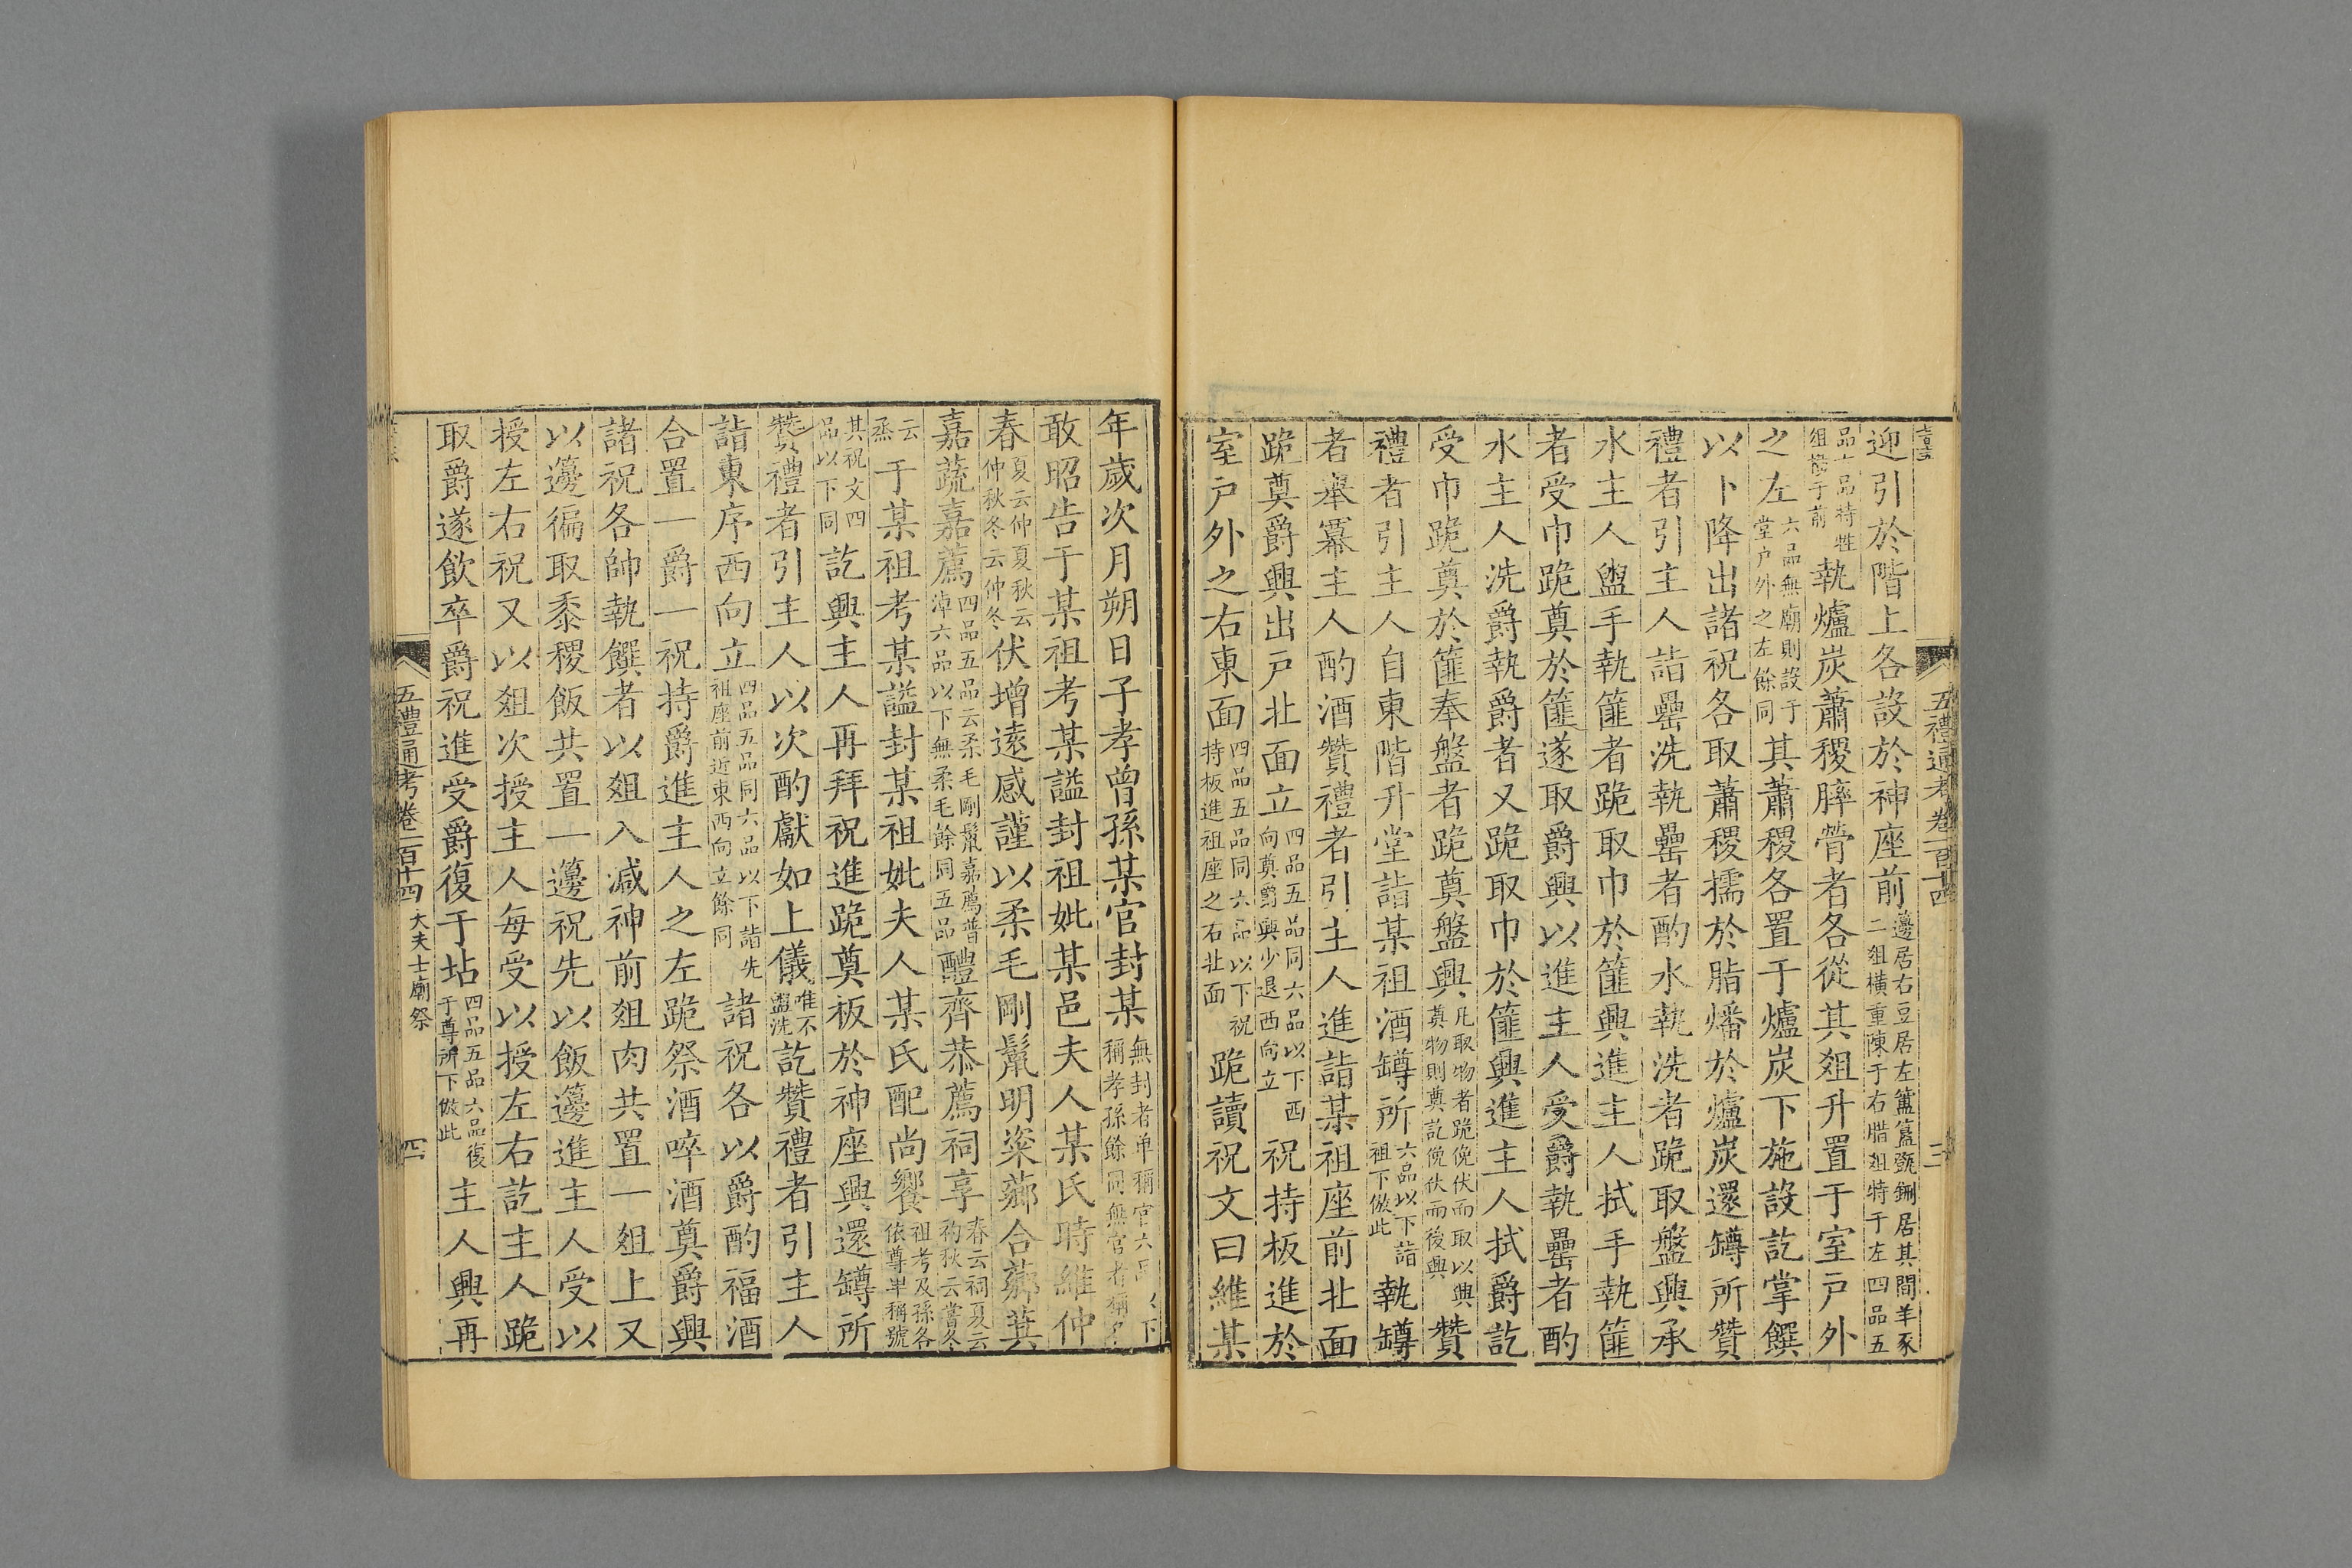 五禮通考卷一百十四
三
迎引於階上各設於神座前籩居右豆居左簠簋㽅鉶居其間羊豕二俎橫重陳于右腊俎特于左四品五
品六品特牲俎橫于前執爐炭蕭稷膟膋者各從其俎升置于室戶外
之左六品無廟則設于堂戶外之左餘同其蕭稷各置于爐炭下施設訖掌饌
以卜降出諸祝各取蕭稷擩於脂燔於爐炭還罇所贊
禮者引主人詣罍洗執罍者酌水執洗者跪取盤興承
水主人盥手執篚者跪取巾於篚興進主人拭手執篚
者受巾跪奠於篚遂取爵興以進主人受爵執罍者酌
水主人洗爵執爵者又跪取巾於篚興進主人拭爵訖
受巾跪奠於篚奉盤者跪奠盤興凡取物者跪俛伏而取以興奠物則奠訖俛伏而後興贊
禮者引主人自東階升堂詣某祖酒罇所六品以下詣祖下倣此執罇
者舉冪主人酌酒贊禮者引主人進詣某祖座前北面
跪奠爵興出戶北面立四品五品同六品以下西向奠爵興少退西向立祝持板進於
室戶外之右東面四品五品同六品以下祝持板進祖座之右北面跪讀祝文曰維某
年歲次月朔日子孝曾孫某官封某無封者單稱官六品以下稱孝孫餘同無官者稱名
敢昭告于某祖考某謚封祖妣某邑夫人某氏時維仲
春夏云仲夏秋云仲秋冬云仲冬伏增遠感謹以柔毛剛鬣明粢薌合薌萁
嘉蔬嘉薦四品五品云柔毛剛鬣嘉薦普淖六品以下無柔毛餘同五品醴齊恭薦祠享春云祠夏云礿秋云嘗冬
云烝于某祖考某謚封某祖妣夫人某氏配尚饗祖考及孫各依尊卑稱號
其祝文四品以下同訖興主人再拜祝進跪奠板於神座興還罇所
贊禮者引主人以次酌獻如上儀唯不盥洗訖贊禮者引主人
詣東序西向立四品五品同六品以下詣先祖座前近東西向立餘同諸祝各以爵酌福酒
合置一爵一祝持爵進主人之左跪祭酒啐酒奠爵興
諸祝各帥執饌者以俎入減神前俎肉共置一俎上又
以籩徧取黍稷飯共置一籩祝先以飯籩進主人受以
授左右祝又以俎次授主人每受以授左右訖主人跪
取爵遂飲卒爵祝進受爵復于坫四品五品六品復于尊所下倣此主人興再
五禮通考卷一百十四 大夫士廟祭
四